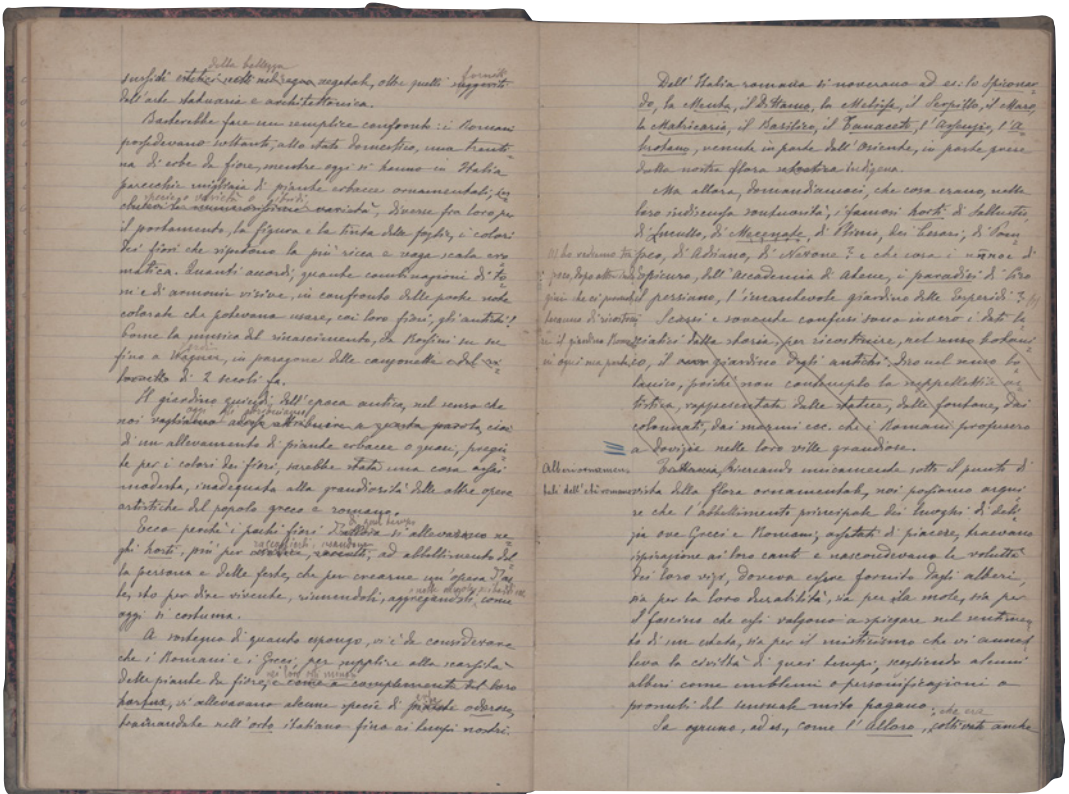 della bellezza
sussidi estetici nel regno vegetale, oltre quelli forniti
dall'arte statuaria e architettonica.
Basterebbe fare un semplice confronto: i Romani
possedevano soltanto, allo stato domestico, una trenti=
na di erbe da fiore, mentre oggi si hanno in Italia
parecchie migliaia di piante erbacee ornamentali, in
specie varietà o ibridi
varietà, diverse fra loro per
il portamento, la figura e la tinta delle foglie, i colori
dei fiori che ripetono la più ricca e vaga scala cro=
matica. Quanti accordi, quante combinazioni di to=
ni e di armonie visive, in confronto delle poche note
colorate che potevano usare, coi loro fiori, gli antichi!
Come la musica del rinascimento, da Rossini su su
fino a Wagner, in paragone delle canzonette
di 2 secoli fa.
Il giardino quindi dell'epoca antica, nel senso che
oggi
noi vogliamo attribuire a questa parola, cioè
di un allevamento di piante erbacee o quasi, pregia
te per i colori dei fiori, sarebbe stata una cosa assai
modesta, inadeguata alla grandiosità delle altre opere
artistiche del popolo greco e romano.
Ecco perchè i pochi fiori si allevavano ne=
gli horti, più per ad abbellimento del
la persona e delle feste, che per crearne un'opera d'ar
te, sto per dire vivente, riunendoli, aggregandoli, come
oggi si costuma.
A sostegno di quanto espongo, vi è da considerare
che i Romani e i Greci, per supplire alla scarsità
delle piante da fiore, e come a complemento del loro
hortus, vi allevavano alcune specie di odorose,
tramandate nell'orto italiano fino ai tempi nostri.
Dell'Italia romana si noverano ad es: lo Spigonar=
do, la Menta, il Dittamo, la Melissa, il Serpillo, il Maro,
la Matricaria, il Basilico, il Tanaceto, l'Assenzio, l'A=
brotano, venute in parte dall'Oriente, in parte prese
dalla nostra flora selvatica indigena.
Ma allora, domandiamoci, che cosa erano, nella
loro indiscussa sontuosità, i famosi horti di Sallustio,
di Lucullo, di Mecenate, di Plinio, dei Cesari, di Pom=
peo, di Adriano, di Nerone? e che cosa i di
Epicuro, dell'Accademia di Atene, i paradisi di Ciro
il persiano, l'incantevole giardino delle Esperidi?
Scarsi e sovente confusi sono invero i dati la=
sciatici dalla storia, per ricostruire, nel senso botani
co, il giardino degli antichi. Dico nel senso bo=
tanico, poichè non contemplo la suppellettile ar=
tistica, rappresentata dalle statue, dalle fontane, dai
colonnati, dai marmi ecc. che i Romani profusero
a dovizie nelle loro ville grandiose.
Alberi ornamen=
tali dell'età romana
Tuttavia, ricercando unicamente sotto il punto di
vista della flora ornamentale, noi possiamo argui=
re che l'abbellimento principale dei luoghi di deli=
zia ove Greci e Romani, assetati di piacere, traevano
ispirazione ai loro canti e nascondevano le voluttà
dei loro vizi, doveva essere fornito dagli alberi,
sia per la loro durabilità, sia per la mole, sia per
il fascino che essi valgono a spiegare nel sentimen=
to di un esteta, sia per il misticismo che vi annet
teva la civiltà di quei tempi, scegliendo alcuni
alberi come emblemi o personificazioni o
pronubi del sensuale mito pagano.
Sa ognuno, ad es., come l'Alloro, coltivato anche